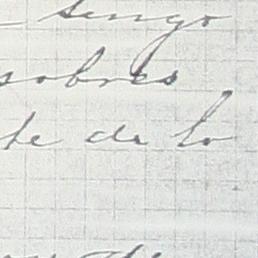 tengo
sobres
te de lo